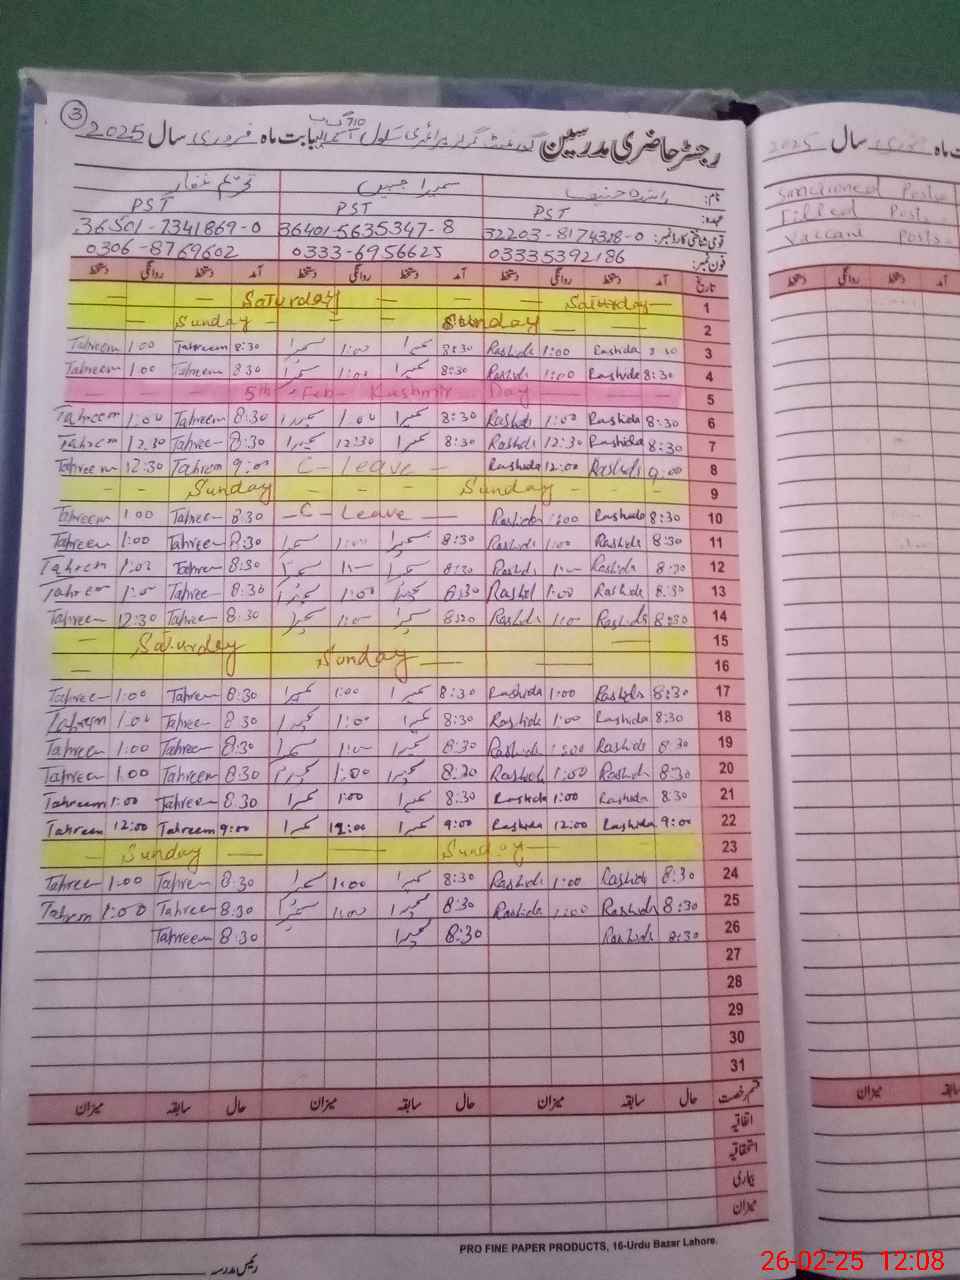 3
رجسٹر حاضری مدرسین گورنمنٹ گرلز پرائمری سکول 710 گ ب بابت ماہ فروری سال 2025
نام: راشدہ حنیف سمیرا جبیں تحریم غفار
عہدہ: PST PST PST
قومی شناختی کارڈ نمبر: 32203-8174328-0 36401-5635347-8 36501-7341869-0
فون نمبر: 03335392186 0333-6956625 0306-8769602
تاریخ آمد دستخط روانگی دستخط آمد دستخط روانگی دستخط آمد دستخط روانگی دستخط
— — Saturday — — Saturday — 1
— Sunday — — — Sunday — — 2
Tahreem 1:00 Tahreem 8:30 سمیرا 1:00 سمیرا 8:30 Rashida 1:00 Rashida 8:30 3
Tahreem 1:00 Tahreem 8:30 سمیرا 1:00 سمیرا 8:30 Rashida 1:00 Rashida 8:30 4
- - - 5th - Feb - Kashmir Day - - - 5
Tahreem 1:00 Tahreem 8:30 سمیرا 1:00 سمیرا 8:30 Rashida 1:00 Rashida 8:30 6
Tahreem 12:30 Tahreem 8:30 سمیرا 12:30 سمیرا 8:30 Rashida 12:30 Rashida 8:30 7
Tahreem 12:30 Tahreem 9:00 C - Leave - Rashida 12:00 Rashida 9:00 8
- - Sunday - - - Sunday - - - 9
Tahreem 1:00 Tahreem 8:30 — C - Leave — Rashida 1:00 Rashida 8:30 10
Tahreem 1:00 Tahreem 8:30 سمیرا 1:00 سمیرا 8:30 Rashida 1:00 Rashida 8:30 11
Tahreem 1:00 Tahreem 8:30 سمیرا 1:00 سمیرا 8:30 Rashida 1:00 Rashida 8:30 12
Tahreem 1:00 Tahreem 8:30 سمیرا 1:00 سمیرا 8:30 Rashida 1:00 Rashida 8:30 13
Tahreem 12:30 Tahreem 8:30 سمیرا 1:00 سمیرا 8:30 Rashida 1:00 Rashida 8:30 14
— Saturday — 15
— Sunday — — 16
Tahreem 1:00 Tahreem 8:30 سمیرا 1:00 سمیرا 8:30 Rashida 1:00 Rashida 8:30 17
Tahreem 1:00 Tahreem 8:30 سمیرا 1:00 سمیرا 8:30 Rashida 1:00 Rashida 8:30 18
Tahreem 1:00 Tahreem 8:30 سمیرا 1:00 سمیرا 8:30 Rashida 1:00 Rashida 8:30 19
Tahreem 1:00 Tahreem 8:30 سمیرا 1:00 سمیرا 8:30 Rashida 1:00 Rashida 8:30 20
Tahreem 1:00 Tahreem 8:30 سمیرا 1:00 سمیرا 8:30 Rashida 1:00 Rashida 8:30 21
Tahreem 12:00 Tahreem 9:00 سمیرا 12:00 سمیرا 9:00 Rashida 12:00 Rashida 9:00 22
— Sunday — — Sunday — 23
Tahreem 1:00 Tahreem 8:30 سمیرا 1:00 سمیرا 8:30 Rashida 1:00 Rashida 8:30 24
Tahreem 1:00 Tahreem 8:30 سمیرا 1:00 سمیرا 8:30 Rashida 1:00 Rashida 8:30 25
Tahreem 8:30 سمیرا 8:30 Rashida 8:30 26
27
28
29
30
31
قسم رخصت حال سابقہ میزان حال سابقہ میزان حال سابقہ میزان
اتفاقیہ
استحقاقیہ
بیماری
میزان
PRO FINE PAPER PRODUCTS, 16-Urdu Bazar Lahore.
رئیس مدرسہ
ماہ فروری سال 2025
Sanctioned Posts
Filled Posts
Vaccant Posts
آمد دستخط روانگی دستخط
سابقہ میزان
26-02-25 12:08